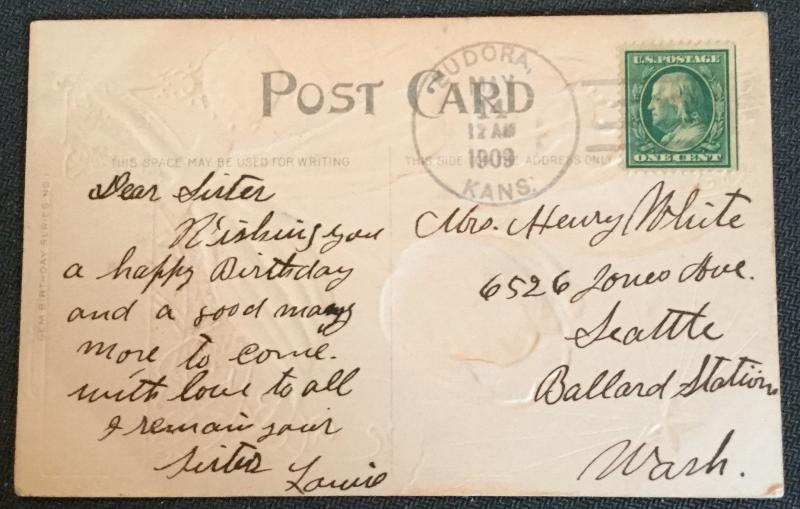 POST CARD
EUDORA,
MAY
11
12 AM
1909
KANS.
U.S. POSTAGE
ONE CENT
THIS SPACE MAY BE USED FOR WRITING
THIS SIDE FOR THE ADDRESS ONLY
GEM BIRTHDAY SERIES NO 1
Dear Sister
Wishing you
a happy Birthday
and a good many
more to come.
with love to all
I remain your
sister
Louise
Mrs. Henry White
6526 Jones Ave.
Seattle
Ballard Station
Wash.